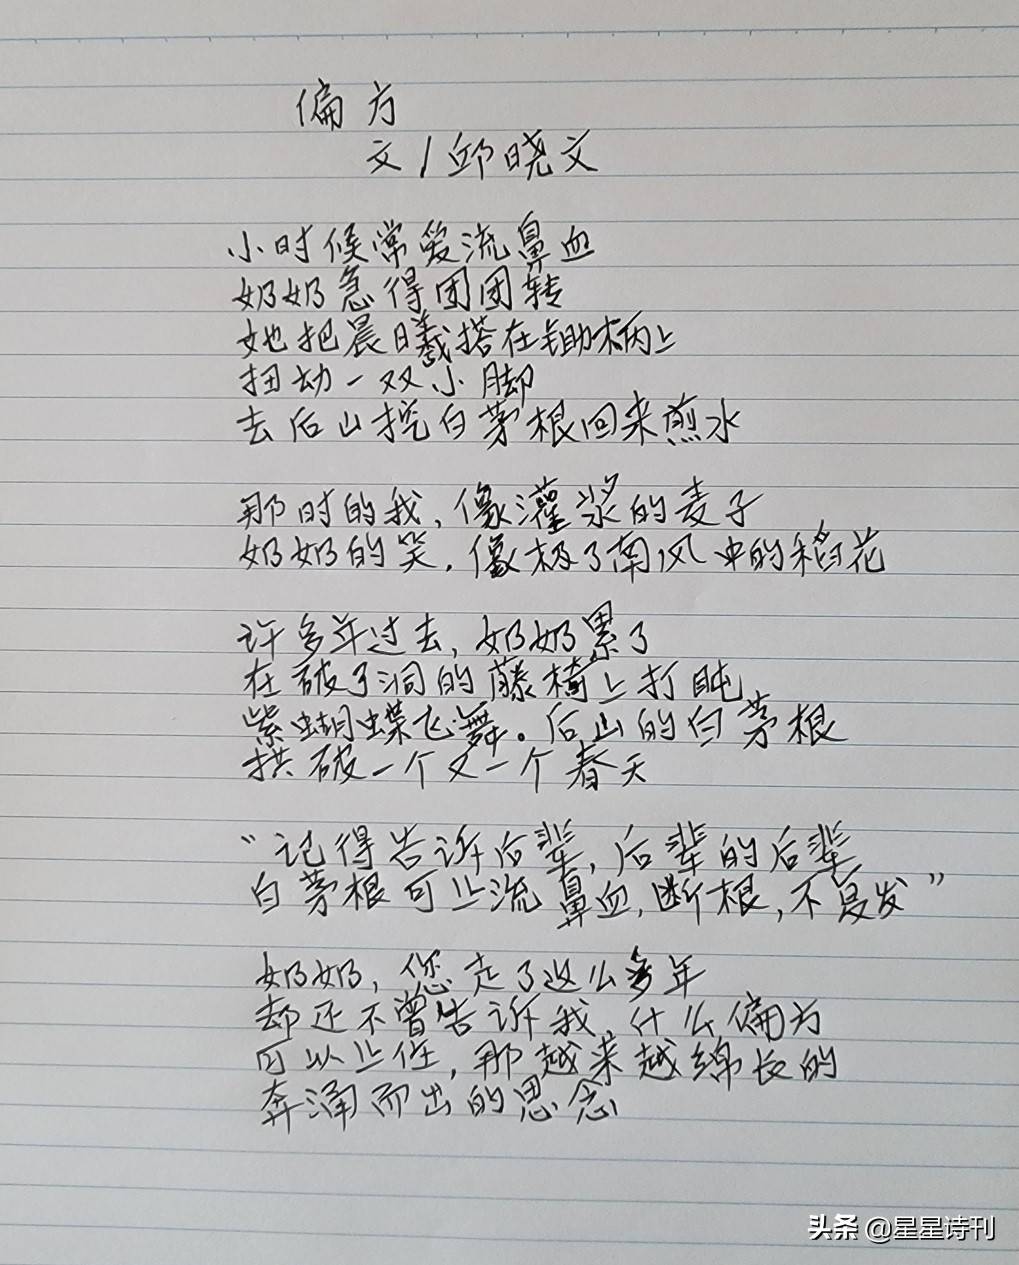 偏方
文/邱晓文
小时候常爱流鼻血
奶奶急得团团转
她把晨曦搭在锄柄上
扭动一双小脚
去后山挖白茅根回来煎水
那时的我,像灌浆的麦子
奶奶的笑,像极了南风中的稻花
许多年过去,奶奶累了
在破了洞的藤椅上打盹
紫蝴蝶飞舞。后山的白茅根
拱破一个又一个春天
“记得告诉后辈,后辈的后辈
白茅根可止流鼻血,断根,不复发”
奶奶,您走了这么多年
却还不曾告诉我,什么偏方
可以止住,那越来越绵长的
奔涌而出的思念
头条 @星星诗刊